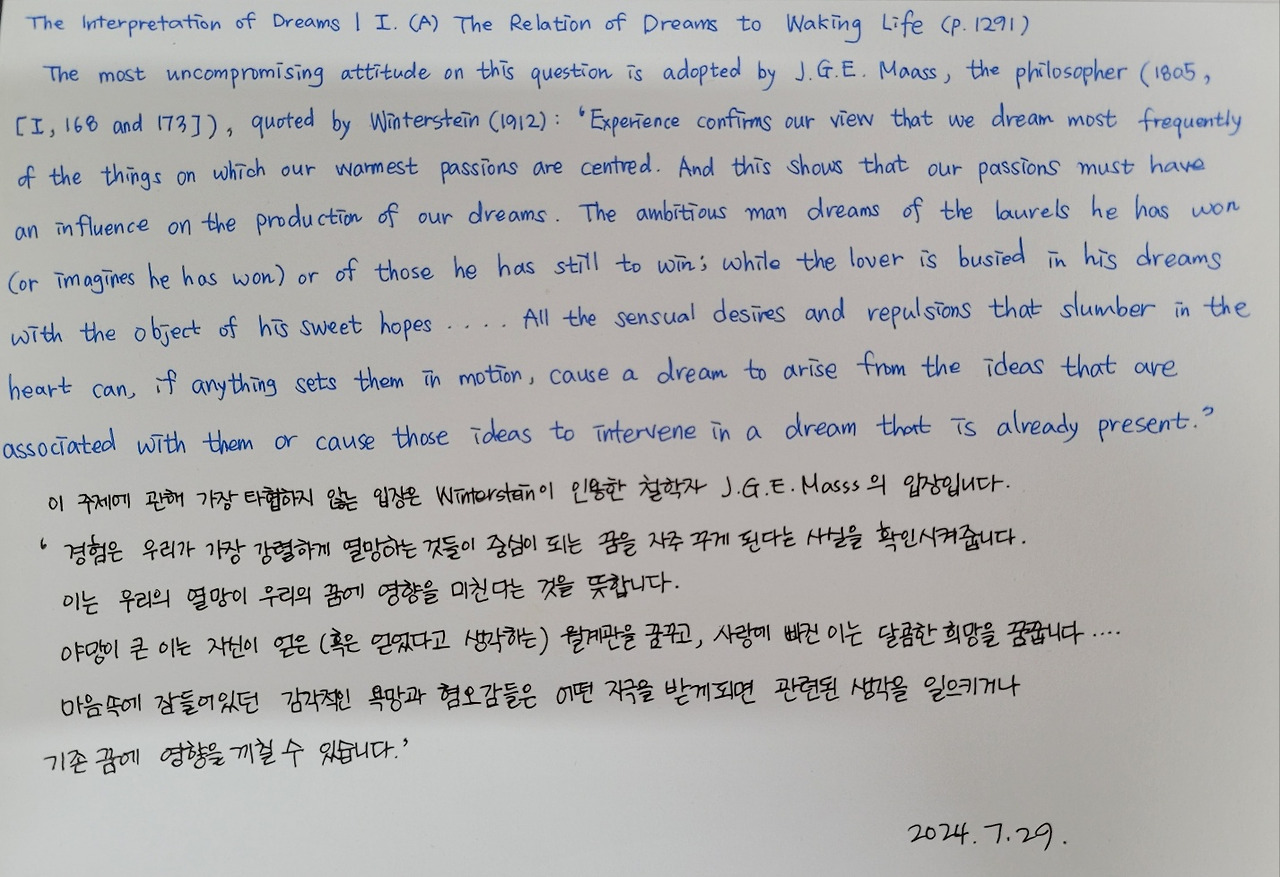 The Interpretation of Dreams | I. (A) The Relation of Dreams to Waking Life (p.1291)
The most uncompromising attitude on this question is adopted by J.G.E. Maass, the philosopher (1805,
[I, 168 and 173]), quoted by Winterstein (1912): 'Experience confirms our view that we dream most frequently
of the things on which our warmest passions are centred. And this shows that our passions must have
an influence on the production of our dreams. The ambitious man dreams of the laurels he has won
(or imagines he has won) or of those he has still to win; while the lover is busied in his dreams
with the object of his sweet hopes .... All the sensual desires and repulsions that slumber in the
heart can, if anything sets them in motion, cause a dream to arise from the ideas that are
associated with them or cause those ideas to intervene in a dream that is already present.'
이 주제에 관해 가장 타협하지 않는 입장은 Winterstein이 인용한 철학자 J.G.E. Masss의 입장입니다.
' 경험은 우리가 가장 강렬하게 열망하는 것들이 중심이 되는 꿈을 자주 꾸게 된다는 사실을 확인시켜줍니다.
이는 우리의 열망이 우리의 꿈에 영향을 미친다는 것을 뜻합니다.
야망이 큰 이는 자신이 얻은 (혹은 얻었다고 생각하는) 월계관을 꿈꾸고, 사랑에 빠진 이는 달콤한 희망을 꿈꿉니다 ....
마음속에 잠들어있던 감각적인 욕망과 혐오감들은 어떤 자극을 받게되면 관련된 생각을 일으키거나
기존 꿈에 영향을 끼칠 수 있습니다.'
2024.7.29.